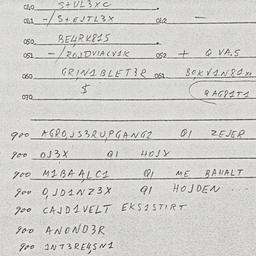 040 S+UL3XC
041 -/S+EJTL3X 042 -
050 BE4RK815
051 -/ZOJDVIALV1K 052 + Q VA.5
060 GRIN1BLET3R 061 BOKV1N81XX
070 $ QAGP1T1
900 AGRO,JS3RU,PGANG2 Q1 ZEJER
900 OJ3X Q1 HOJX
900 M1BAALC1 Q1 ME BAHALT
900 O,JD1NZ3X Q1 HOJDEN ...
900 CAJD1VELT EKS1STIRT
900 ANOND3R
900 1NT3RE4SN1